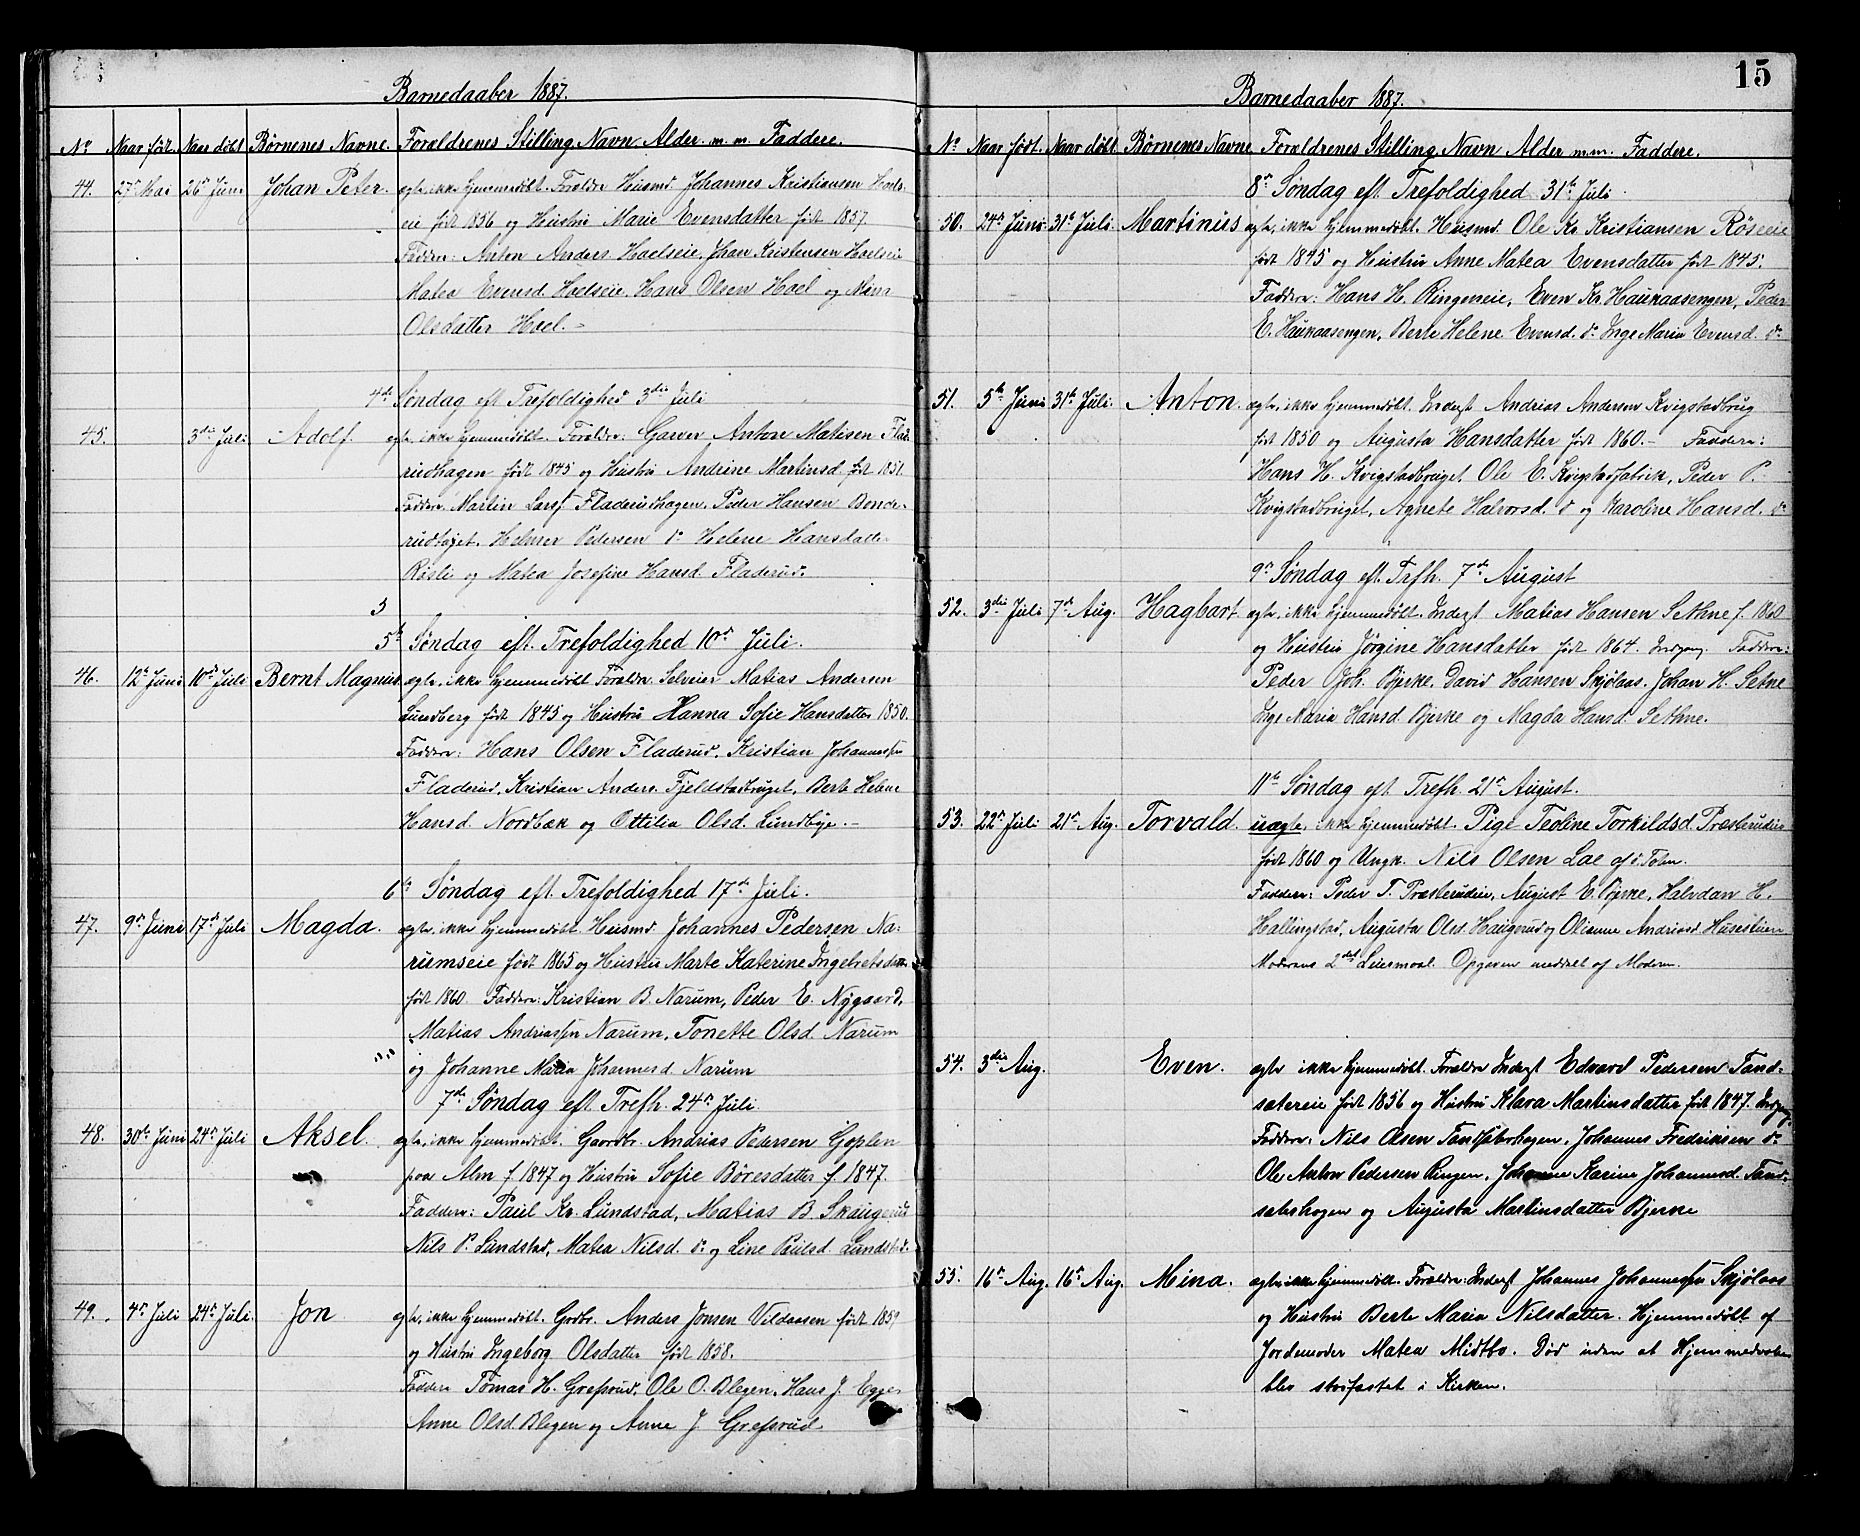 Barnedaaber 1887.
No Naar født. Naar døbt Børnenes Navne. Forældrenes Stilling Navn Alder m. m. Faddere.
44. 27de Mai 26de Juni Johan Peter. ægte, ikke hjemmedøbt. Forældre Husmd. Johannes Kristiansen Hoels-
eie født 1856 og Hustru Marie Evensdatter født 1857
Faddere: Anton Anders. Hoelseie, Johan Kristensen Hoelseie
Matea Evensd. Hoelseie, Hans Olsen Hoel og
Olsdatter Hoel. -
4de Søndag eft. Trefoldighed 3die Juli
45. 3die Juli Adolf. ægte, ikke hjemmedøbt. Forældre: Garver Antore Matisen Flad-
rudhagen født 1845 og Hustru Andrine Martinsd. født 1851.
Faddere. Martin Larss. Fladerudhagen, Peder Hansen Bonde-
rudtøjet. Helmer Pedersen do Helene Hansdatter
Røsli og Matea Josefine Hansd. Fladerud.
5
5te Søndag eft. Trefoldighed 10de Juli.
46. 12te Juni 10de Juli Bernt Magnus. ægte, ikke hjemmedøbt Forældre. Selveier Matias Andersen
Lundberg født 1845 og Hustru Hanna Sofie Hansdatter 1850.
Faddere: Hans Olsen Fladerud, Kristian Johannessen
Fladerud, Kristian Anders. Fjeldstadbruget, Berte Helene
Hansd. Nordbæk og Ottilia Olsd. Lundbye. -
6te Søndag eft. Trefoldighed 17de Juli.
47. 9de Juni 17de Juli Magda. ægte, ikke hjemmedøbt. Husmd. Johannes Pedersen Na-
rumseie født 1865 og Hustru Marte Katerine Ingebretsdatter
født 1860. Faddere: Kristian B. Narum, Peder E. Nygaard,
Matias Andriassen Narum, Tonette Olsd. Narum
og Johanne Maria Johannesd. Narum
7de Søndag eft. Trefh. 24de Juli
48. 30de Juni 24de Juli Aksel. ægte, ikke hjemmedøbt. Gaardbr. Andrias Pedersen Goplen
paa Alm f. 1847 og Hustru Sofie Børesdatter f. 1847.
Faddere: Paul Kr. Lundstad, Matias B. Skaugerud
Nils P. Lundstad, Matea Nilsd. do og Line Paulsd. Lundstad.
49. 4de Juli 24de Juli. Jon ægte, ikke hjemmedøbt. Grdbr. Anders Jonsen Vildaasen født 1859
og Hustru Ingeborg Olsdatter født 1858.
Faddere Tomas H. Grefsrud, Ole O. Blegen, Hans J. Egge
Anne Olsd. Blegen og Anne J. Grefsrud.
15
Barnedaaber 1887.
No Naar født. Naar døbt Børnenes Navne Forældrenes Stilling Navn Alder m.m. Faddere.
8de Søndag eft. Trefoldighed 31te Juli.
50. 24de Juni 31te Juli. Martinus ægte, ikke hjemmedøbt. Husmd. Ole Kr. Kristiansen Røseeie
født 1845 og Hustru Anne Matea Evensdatter født 1845.
Faddere: Hans H. Ringeneie, Even Kr. Haukaasengen, Peder
E. Haukaasengen, Berte Helene Evensd. do Inge Maria Evensd. do
51. 5te Juni 31te Juli. Anton. ægte, ikke hjemmedøbt. Inderst Andrias Andersen Kvigstadbrug
født 1850 og Augusta Hansdatter født 1860. - Faddere:
Hans H. Kvigstadbruget, Ole E. Kvigstadfabrik, Peder P.
Kvigstadbruget, Agnete Halvorsd. do og Karoline Hansd. do
9de Søndag eft. Trfh. 7de August
52. 3die Juli 7de Aug. Hagbart. ægte, ikke hjemmedøbt. Inderst Matias Hansen Sethne f. 1860
og Hustru Jørgine Hansdatter født 1864. Faddere:
Peder Joh. Bjerke, David Hansen Skjølaas, Johan H. Setne
Inge Maria Hansd. Bjerke og Magda Hansd. Sethne.
11te Søndag eft. Trefh. 21de August.
53. 22de Juli 21de Aug. Torvald. uægte, ikke hjemmedøbt. Pige Teoline Torkildsd. Præsterudeie
født 1860 og Ungk. Nils Olsen Lae af Ø. Toten.
Faddere: Peder T. Præsterudeie, August E. Bjerke, Halvdan H.
Hallingstad, Augusta Olsd. Haugerud og Olianne Andriasd. Husestuen
Moderens 2det Leiermaal. Opgaven meddelt af Moderen.
54. 3die Aug. Even. ægte ikke hjemmedøbt. Forældre Inderst Edvard Pedersen Tand-
sætereie født 1856 og Hustru Klara Martinsdatter født 1847.
Faddere: Nils Olsen Tandsæterhagen, Johannes Fredriksen do
Ole Anton Pedersen Ringen, Johanne Karine Johannesd. Tand-
sæterhagen og Augusta Martinsdatter Bjerke
55. 16de Aug. 16de Aug. Mina. ægte ikke hjemmedøbt. Forældre: Inderst Johannes Johannessen Skjølaas
og Hustru Berte Maria Nilsdatter. Hjemmedøbt af
Jordemoder Matea Midtbo. Død inden at Hjemmedaaben
blev stadfæstet i Kirken.